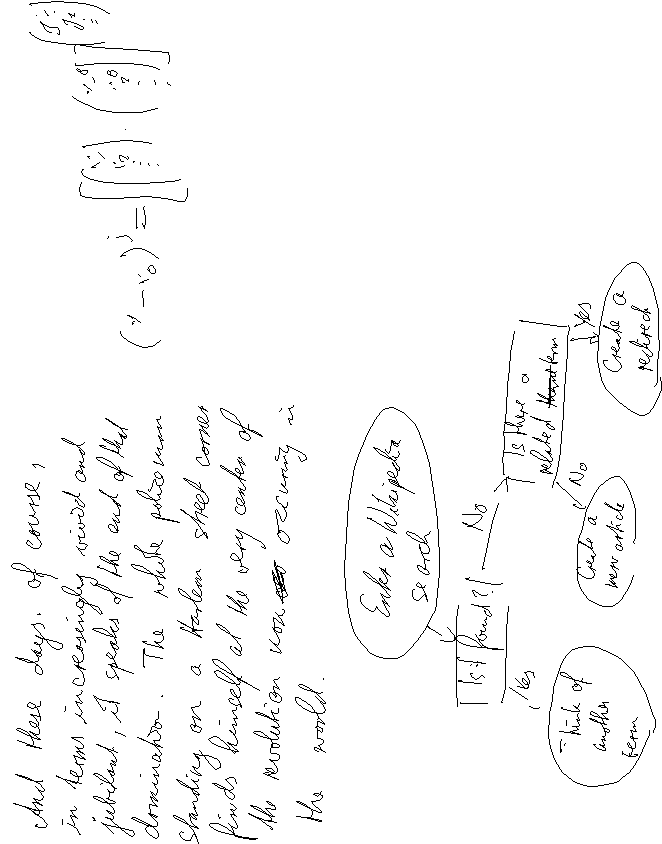 And these days, of course,
in terms increasingly vivid and
jubilant, it speaks of the end of that
domination. The white policeman
standing on a Harlem street corner
finds himself at the very center of
the revolution now occurring in
the world.
Enter a Wikipedia
search
Is it found?
No
Yes
Is there a
related term
No
Yes
Think of
another
term
Create a
new article
Create a
redirect